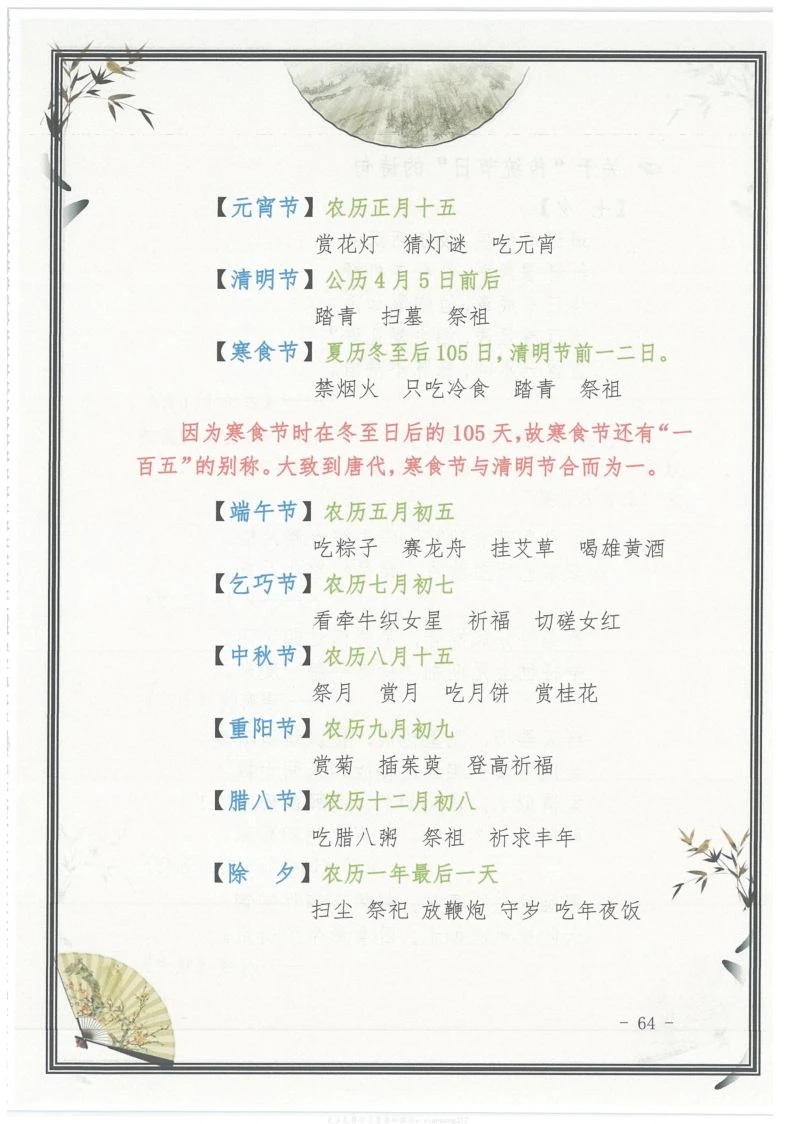 【元宵节】农历正月十五
赏花灯 猜灯谜 吃元宵
【清明节】公历4月5日前后
踏青 扫墓 祭祖
【寒食节】夏历冬至后105日,清明节前一二日。
禁烟火 只吃冷食 踏青 祭祖
因为寒食节时在冬至日后的105天,故寒食节还有“一
百五”的别称。大致到唐代,寒食节与清明节合而为一。
【端午节】农历五月初五
吃粽子 赛龙舟 挂艾草 喝雄黄酒
【乞巧节】农历七月初七
看牵牛织女星 祈福 切磋女红
【中秋节】农历八月十五
祭月 赏月 吃月饼 赏桂花
【重阳节】农历九月初九
赏菊 插茱萸 登高祈福
【腊八节】农历十二月初八
吃腊八粥 祭祖 祈求丰年
【除 夕】农历一年最后一天
扫尘 祭祀 放鞭炮 守岁 吃年夜饭
- 64 -